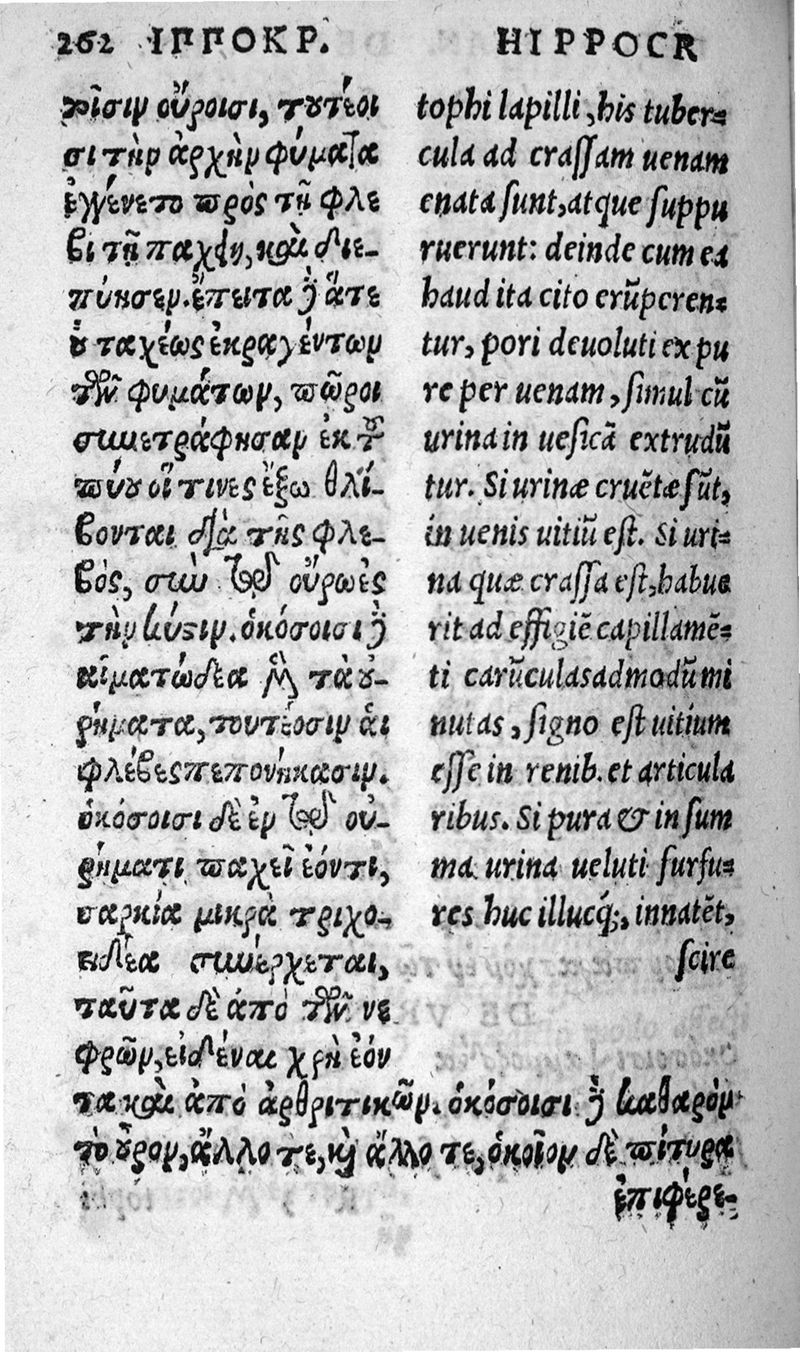 262 ΙΠΠΟΚΡ.
ῥοῖσιν οὔροισι, τουτέοι
σι τὴν ἀρχὴν φύματα
ἐγγένετο πρὸς τῇ φλε
βὶ τῇ παχείῃ, καὶ διε-
πύησεν. ἔπειτα δὲ ἅτε
οὐ ταχέως ἐκραγέντων
τῶν φυμάτων, πῶροι
συνετράφησαν ἐκ τοῦ
πύου οἵ τινες ἔξω θλί-
βονται διὰ τῆς φλε-
βός, σὺν τῷ οὔρῳ ἐς
τὴν κύστιν. ὁκόσοισι δὲ
αἱματώδεα μὲν τὰ οὐ-
ρήματα, τουτέοσιν αἱ
φλέβες πεπονήκασιν.
ὁκόσοισι δὲ ἐν τῷ οὐ-
ρήματι παχεῖ ἐόντι,
σαρκία μικρὰ τριχο-
ειδέα συνέρχεται,
ταῦτα δὲ ἀπὸ τῶν νε
φρῶν, εἰδέναι χρὴ ἐόν
τα καὶ ἀπὸ ἀρθριτικῶν. ὁκόσοισι δὲ καθαρὸν
τὸ οὖρον, ἄλλο τε, καὶ ἄλλο τε, ὁκοῖον δὲ πίτυρα
ἐπιφέρε-
HIPPOCR
tophi lapilli, his tuber=
cula ad crassam uenam
enata sunt, atque suppu
ruerunt: deinde cum ea
haud ita cito erũperen=
tur, pori deuoluti ex pu
re per uenam, simul cũ
urina in uesicã extrudũ
tur. Si urinæ cruẽtæ sũt,
in uenis uitiũ est. Si uri=
na quæ crassa est, habue
rit ad effigiẽ capillamẽ=
ti carũculas admodũ mi
nutas, signo est uitium
esse in renib. et articula
ribus. Si pura & in sum
ma urina ueluti furfu=
res huc illucq;, innatẽt,
scire